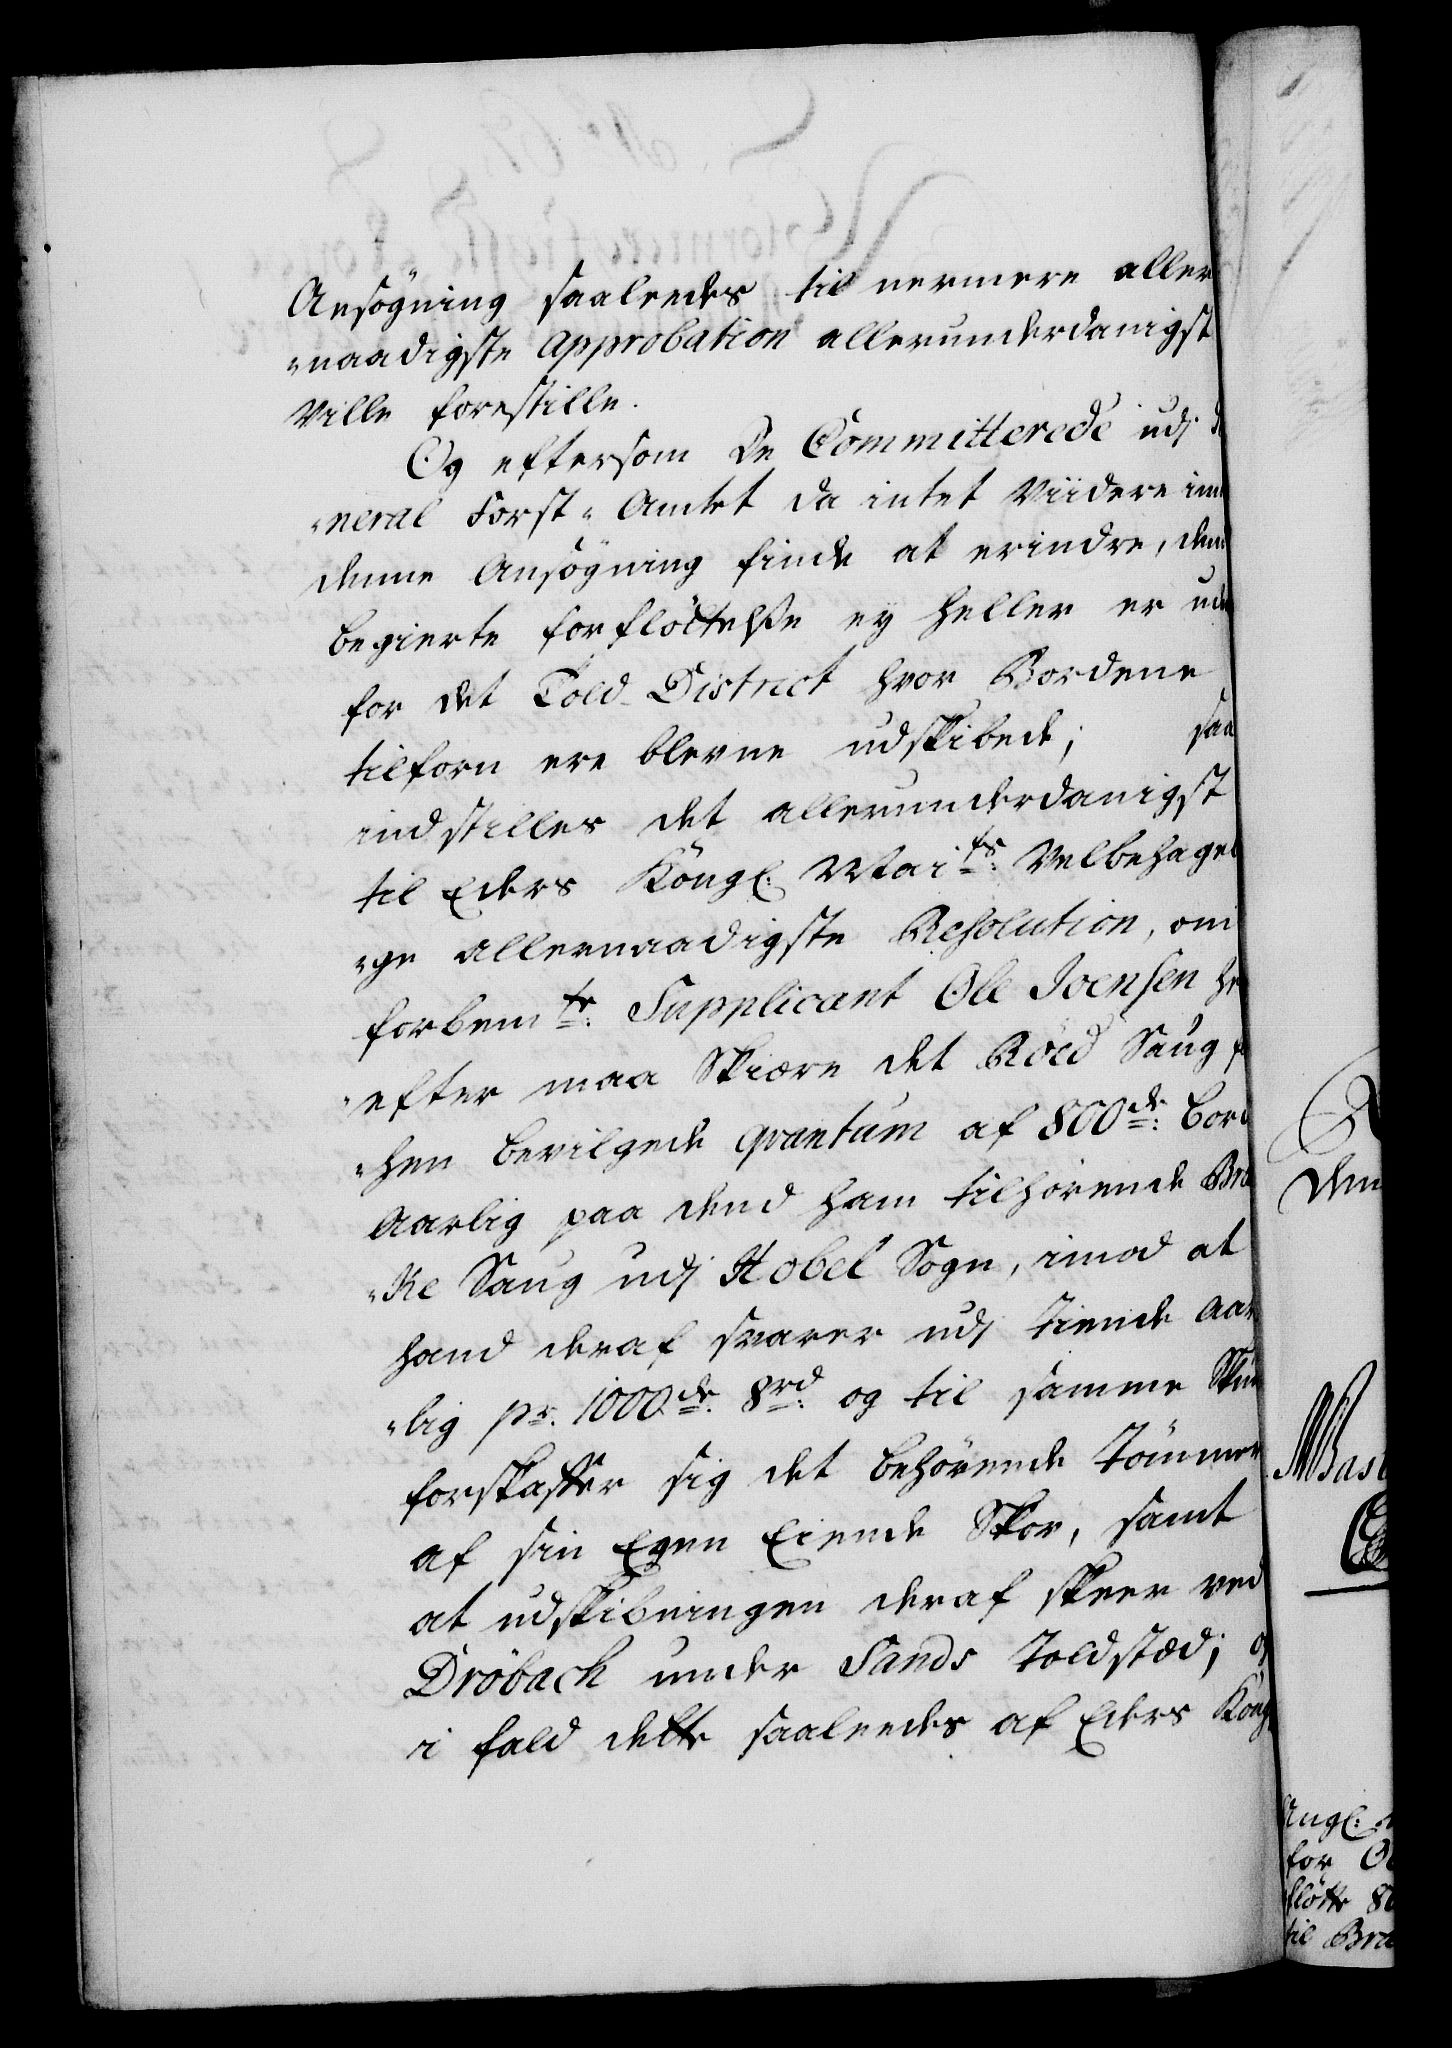 Ansögning saaleedes til nermere aller
"naadigste Approbation allerunderdanigst
Ville forestille.
Og eftersom De Committerede udj
"neral Forst-Amtet da intet Viidere
denne Ansögning finde at erindre, dend
begierte forflöttelse ey heller er
for det Told-District hvor Bordene
tilforn ere blevne udskibede; saa
indstilles det allerunderdanigst
til Eders Köngl. Mai^ts: Velbehagel
"ge allernaadigste Resolution, om
forbem^te: Supplicant Ole Joensen
"efter maa Skiære det Röed Saug
"hen bevilgede qvantum af 800^de: bord
Aarlig paa dend ham tilhörende Bra
"ke Saug udj Hobel Sogn, imod at
hand deraf svarer udj Tiende Aar
"lig pr. 1000^de: 8^rd: og til samme
forskaffer sig det behörende Tömmer
af sin Egen Eiende Skov, samt
at udskibningen deraf skeer ved
Dröbach under Sands Toldsted; og
i fald dette saaleedes af Eders Köng
den
for
flötte
til Bra